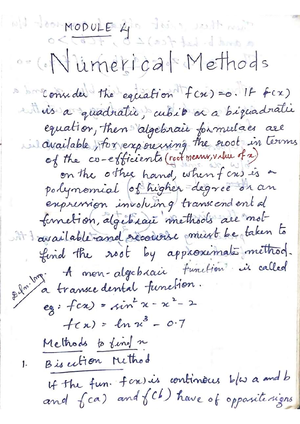 MODULE 4
Numerical Methods
Consider the equation f(x)=0. If f(x)
is a quadratic, cubic or a biquadratic
equation, then algebraic formulaes are
available, for expressing the root in terms
of the co-efficients (root means, value of x)
on the other hand, when f(x) is a
polynomial of higher degree or an
expression involving transcendental
function, algebraic methods are not
available and recourse must be taken to
find the root by approximate method.
Defn. long.
A non-algebraic function is called
a transcedental function.
eg: f(x) = sin² x - x² - 2
f(x) = ln x³ - 0.7
Methods to find x
1. Bisection Method
If the fun. f(x) is continous b/w a and b
and f(a) and f(b) have of opposite signs